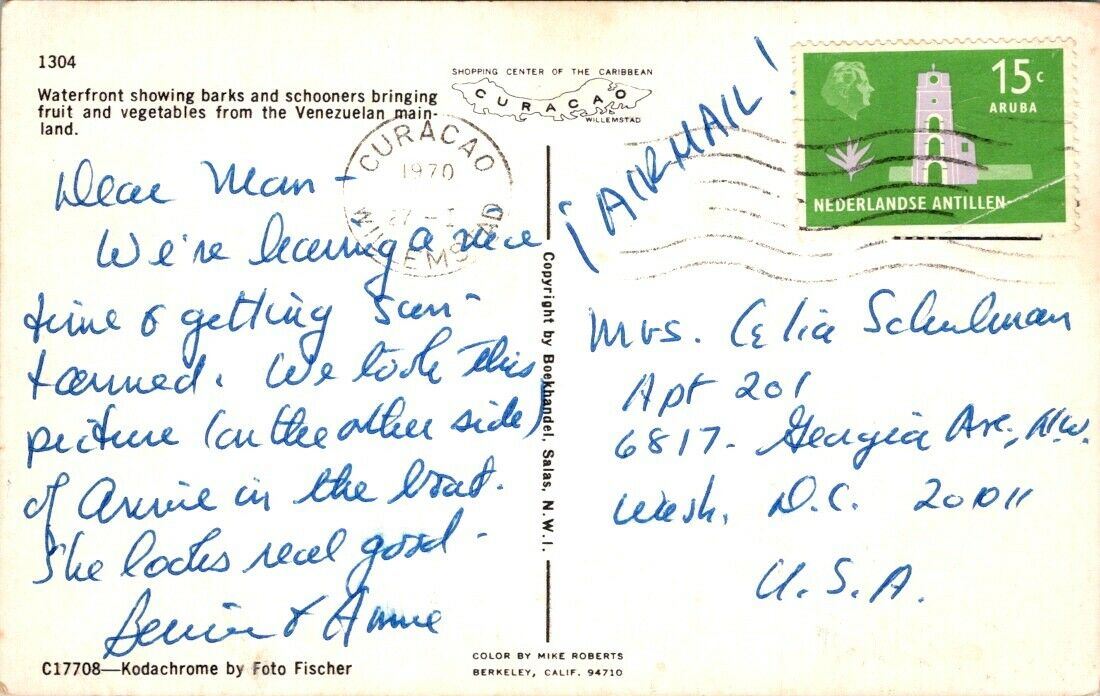 1304
Waterfront showing barks and schooners bringing
fruit and vegetables from the Venezuelan main-
land.
SHOPPING CENTER OF THE CARIBBEAN
CURACAO
WILLEMSTAD
CURACAO
1970
WILLEMSTAD
15 c
ARUBA
NEDERLANDSE ANTILLEN
¡AIRMAIL!
Dear Mom -
We're having a nice
time & getting sun-
tanned. We took this
picture (on the other side)
of Annie in the boat.
She looks real good.
& Annie
Copyright by Boekhandel, Salas, N.W.I.
Mrs. Celia Schulman
Apt 201
6817- Georgia Ave., N.W.
Wash. D.C. 20011
U.S.A.
C17708—Kodachrome by Foto Fischer
COLOR BY MIKE ROBERTS
BERKELEY, CALIF. 94710